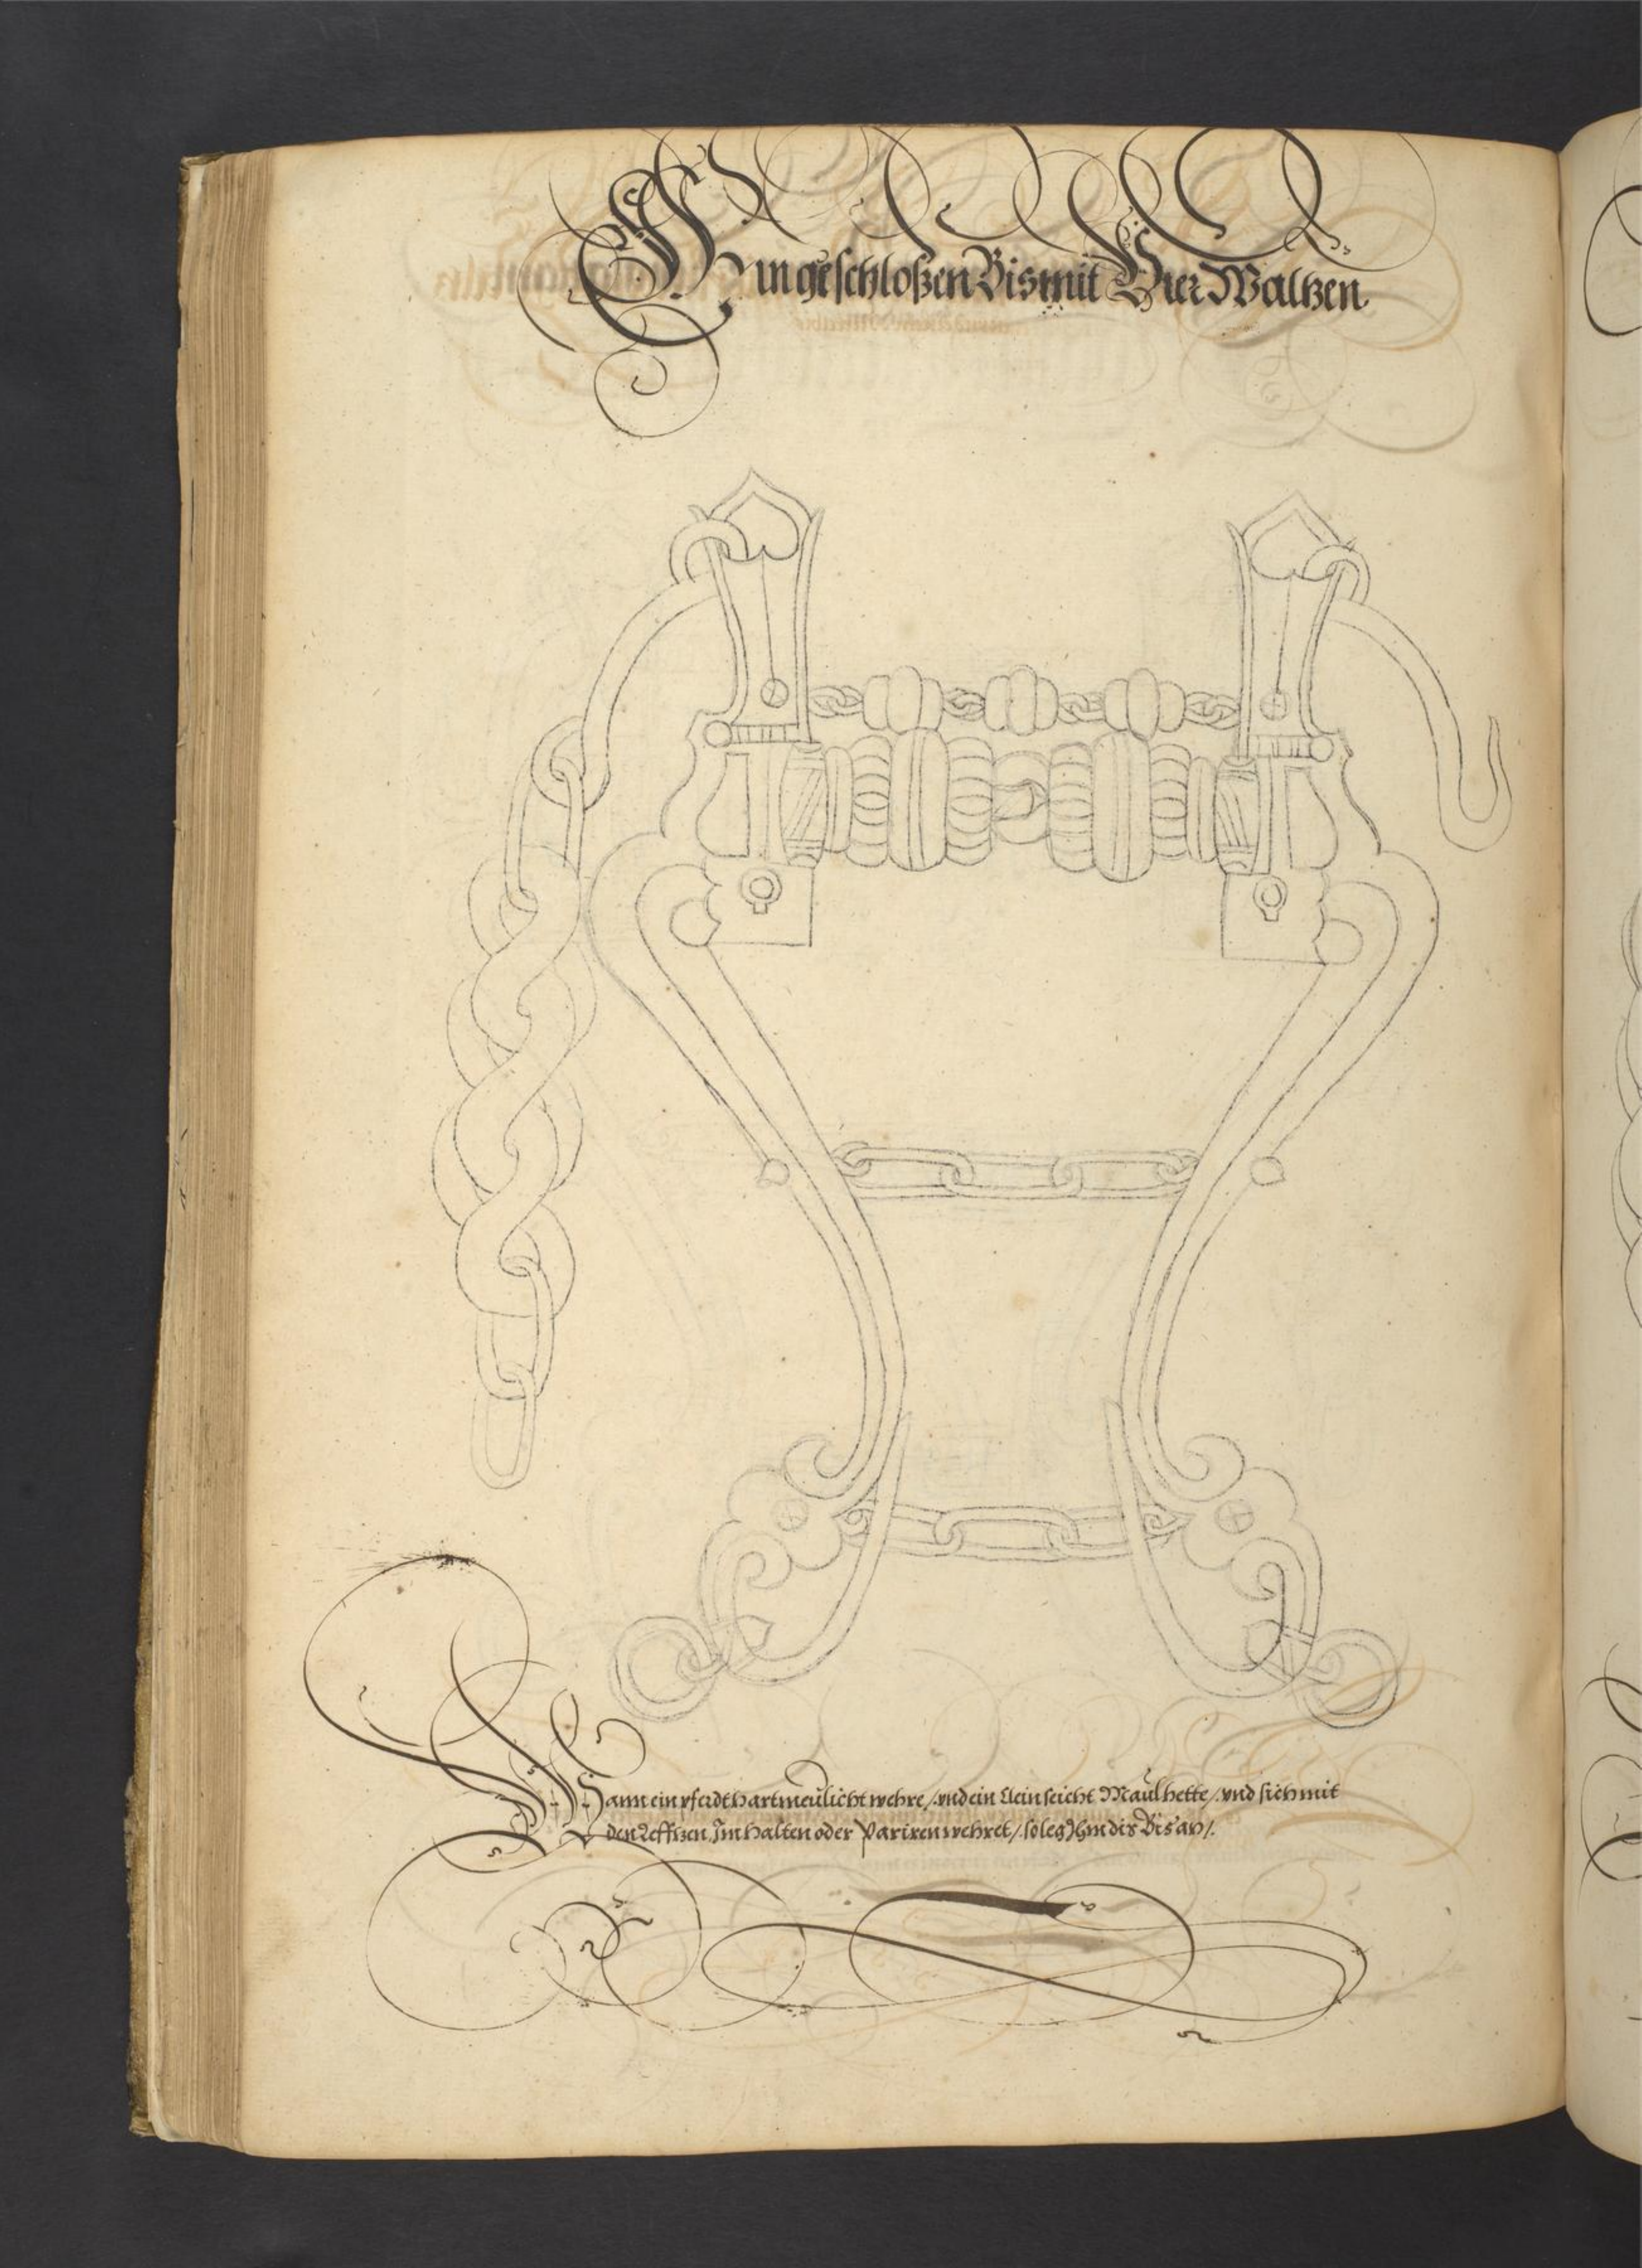 Ein geschloßen Bis mit Vier Waltzen.
Wann ein pferdt hartmeulicht wehre /. vnd ein klein seicht Maul hette /. vnd sich mit
den Leffzen Im halten oder Pariren wehret /. so leg Ihm dis Bis an /.